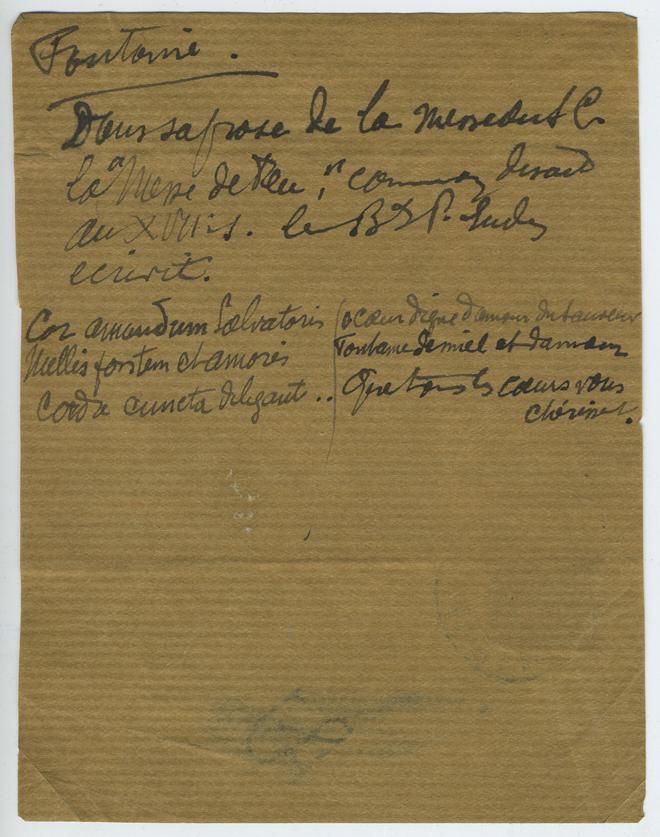 Fontaine.
Dans sa prose de la messe du S C.
la "Messe de feu," comme on disait
au XVIIe s. le Bx P. Eudes
écrivit.
Cor amandum Salvatoris
Mellis fontem et amoris
Corda cuncta diligant..
o cœur digne d'amour du Sauveur
Fontaine de miel et d'amour
Que tous les cœurs vous
chérissent.